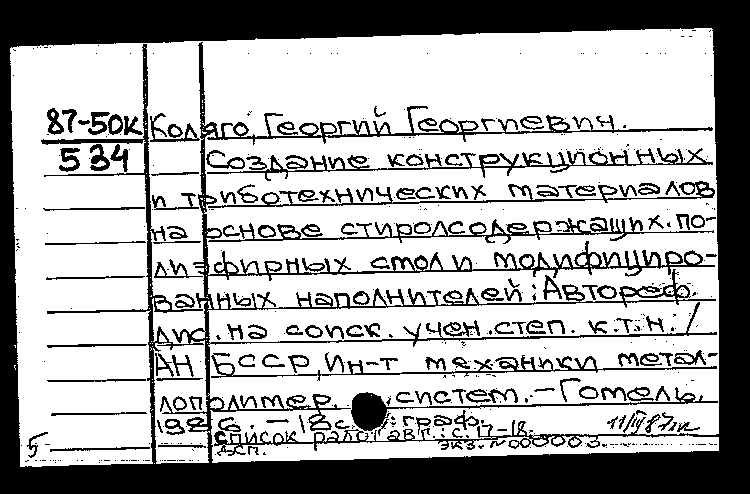 87-50к Коляго, Георгий Георгиевич.
534 Создание конструкционных
и триботехнических материалов
на основе стиролсодержащих по-
лиэфирных смол и модифициро-
ванных наполнителей: Автореф.
дис. на соиск. учен. степ. к.т.н. /
АН БССР, Ин-т механики метал-
лополимер. систем. - Гомель,
1986. - 18 с.: граф.
Список работ авт.: с. 17-18.
5 Дсп. экз. N 000003.